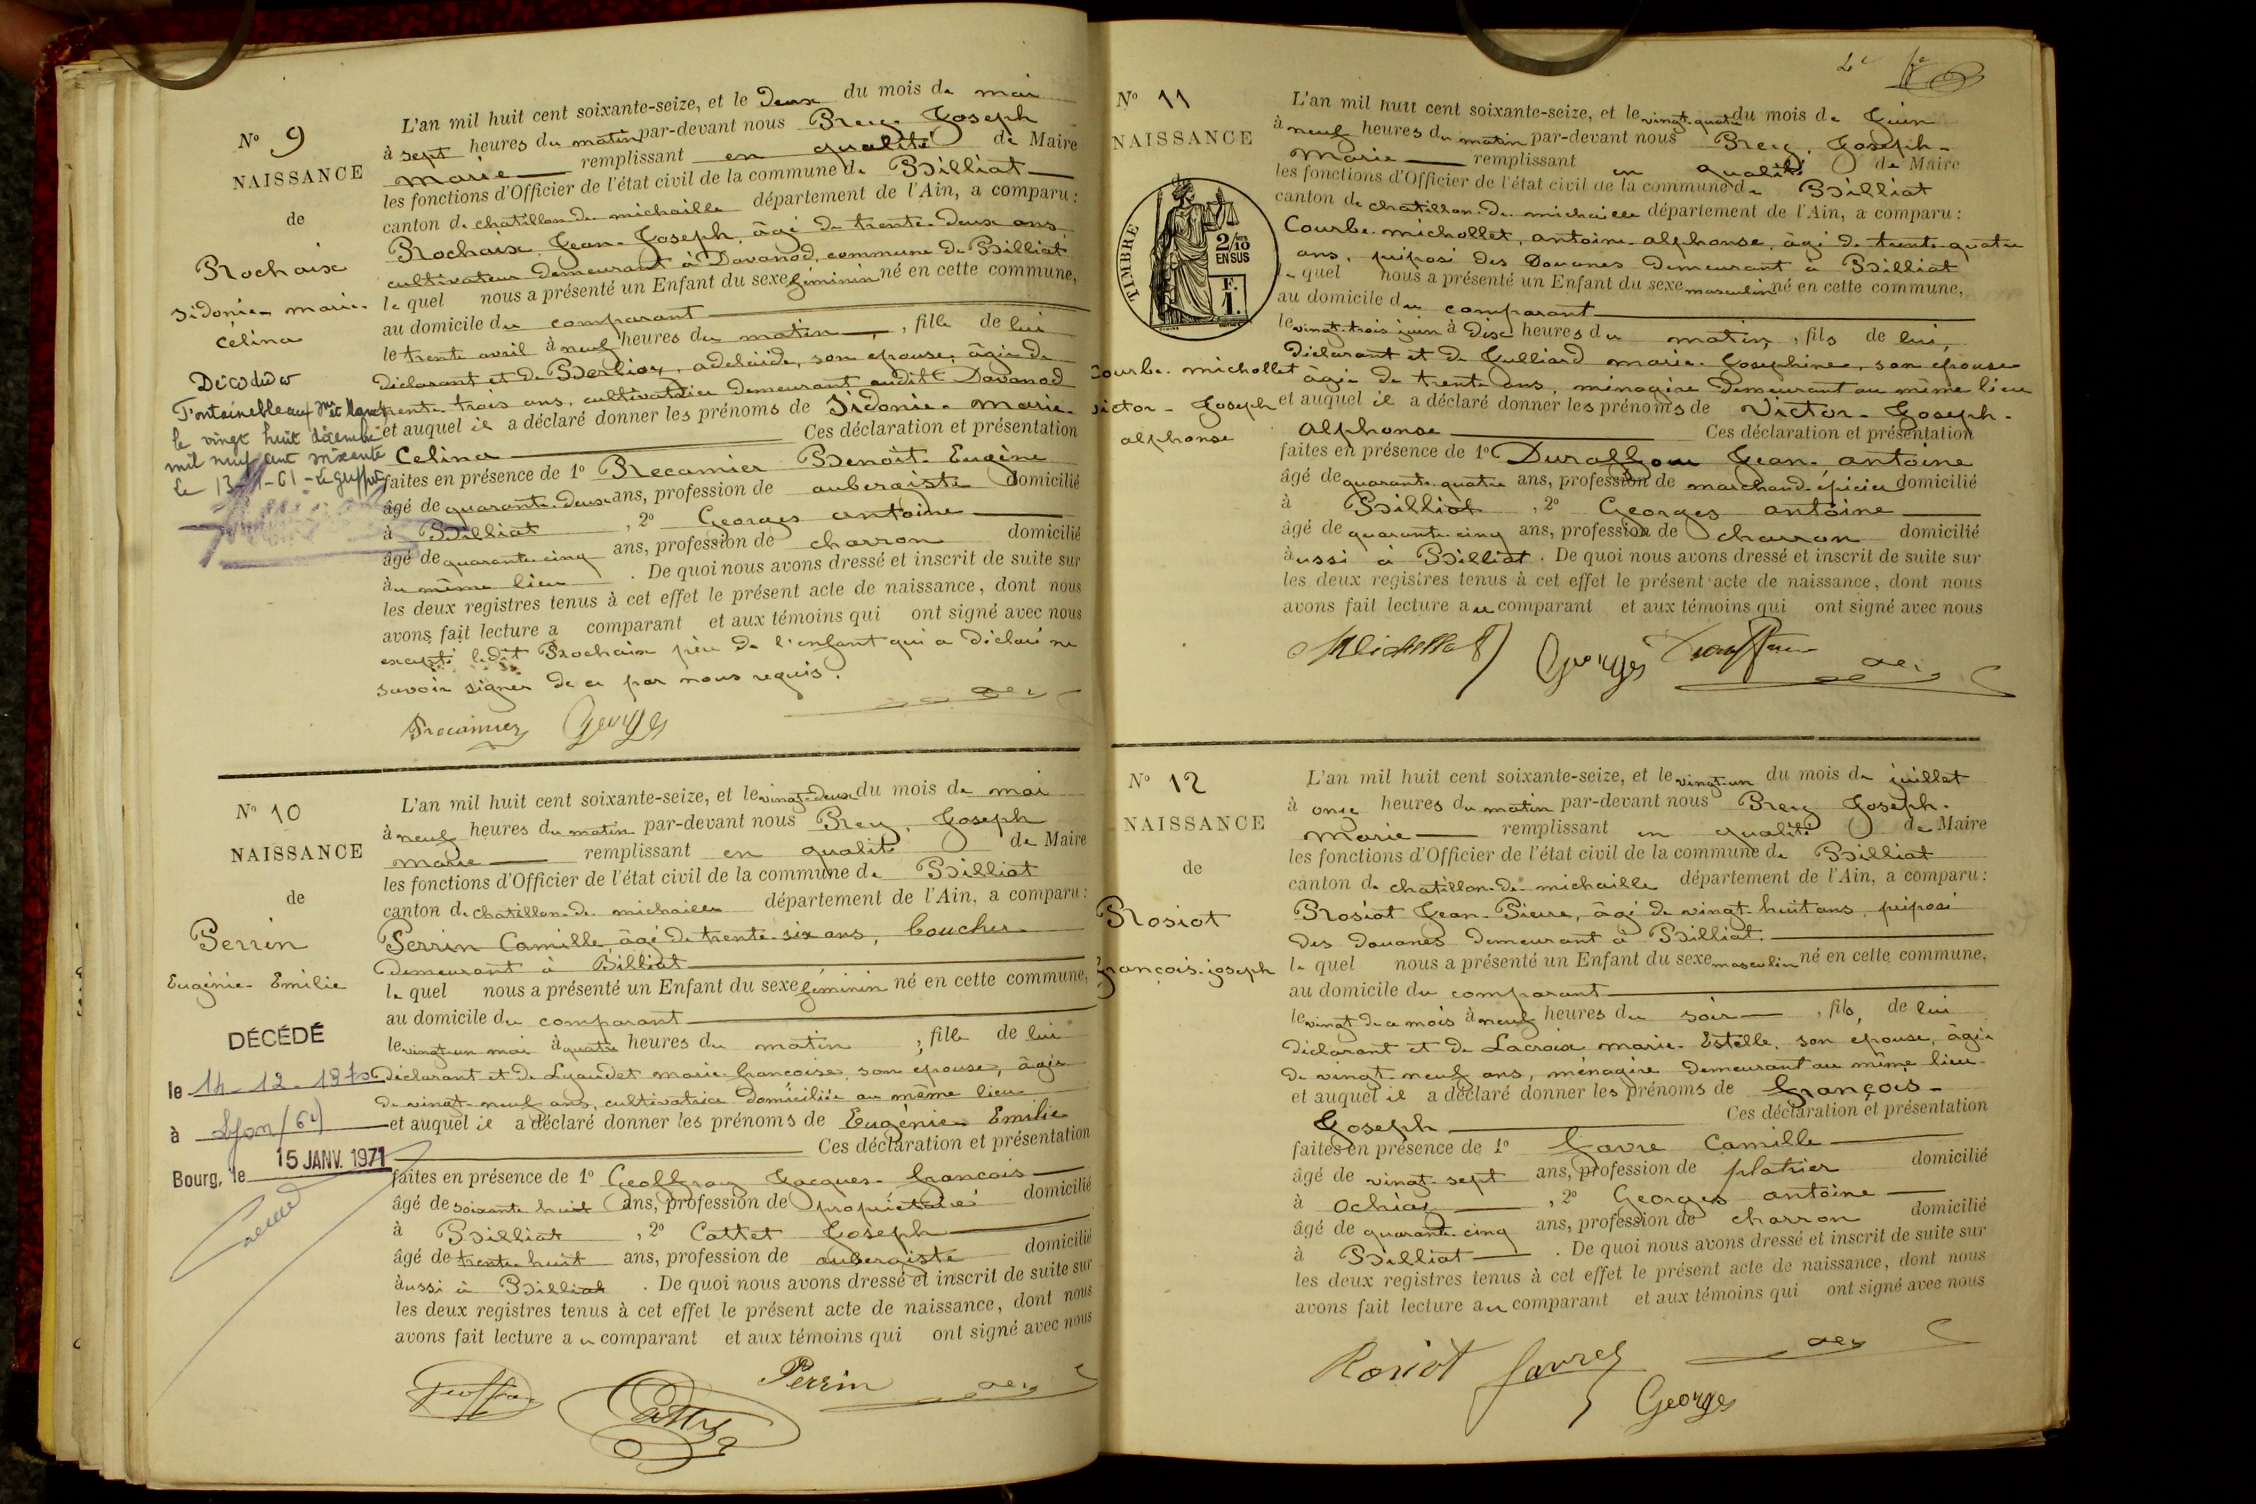 N° 9
NAISSANCE
de
Rochaix
Sidonie-marie-
Célina
Décédée à
Fontainebleau, Sne et Marne
le vingt huit décembre
mil neuf cent soixante
le 13-1-61 - Le greffier
L'an mil huit cent soixante-seize, et le Deux du mois de mai
à sept heures du matin par-devant nous Brey Joseph
marie remplissant en qualité de Maire
les fonctions d'Officier de l'état civil de la commune de Billiat
canton de chatillon-de-michaille département de l'Ain, a comparu :
Rochaix Jean-Joseph, âgé de trente-deux ans,
cultivateur demeurant à Davanod, commune de Billiat
lequel nous a présenté un Enfant du sexe féminin né en cette commune,
au domicile du comparant
le trente avril à neuf heures du matin, fille de lui
déclarant et de Berlioz, adelaïde, son épouse, âgée de
trente-trois ans, cultivatrice demeurant audit Davanod
et auquel il a déclaré donner les prénoms de Sidonie-marie-
Célina Ces déclaration et présentation
faites en présence de 1° Recamier Benoit-Eugène
âgé de quarante-deux ans, profession de aubergiste domicilié
à Billiat, 2° Georges antoine
âgé de quarante-cinq ans, profession de charron domicilié
au même lieu. De quoi nous avons dressé et inscrit de suite sur
les deux registres tenus à cet effet le présent acte de naissance, dont nous
avons fait lecture a comparant et aux témoins qui ont signé avec nous
excepté ledit Rochaix père de l'enfant qui a déclaré ne
savoir signer de ce par nous requis.
Recamier Georges
N° 10
NAISSANCE
de
Perrin
Eugénie-Emilie
DÉCÉDÉ
le 14-12-1970
à Lyon (6e)
Bourg, le 15 JANV. 1971
L'an mil huit cent soixante-seize, et le vingt-deux du mois de mai
à neuf heures du matin par-devant nous Brey, Joseph
marie remplissant en qualité de Maire
les fonctions d'Officier de l'état civil de la commune de Billiat
canton de chatillon-de-michaille département de l'Ain, a comparu :
Perrin Camille, âgé de trente-six ans, boucher
demeurant à Billiat
lequel nous a présenté un Enfant du sexe féminin né en cette commune,
au domicile du comparant
le vingt-un mai à quatre heures du matin, fille de lui
déclarant et de Lyaudet marie-françoise, son épouse, âgée
de vingt-neuf ans, cultivatrice domiciliée au même lieu
et auquel il a déclaré donner les prénoms de Eugénie-Emilie
Ces déclaration et présentation
faites en présence de 1° Geoffray Jacques-françois
âgé de soixante huit ans, profession de propriétaire domicilié
à Billiat, 2° Cattet Joseph
âgé de trente-huit ans, profession de aubergiste domicilié
aussi à Billiat. De quoi nous avons dressé et inscrit de suite sur
les deux registres tenus à cet effet le présent acte de naissance, dont nous
avons fait lecture au comparant et aux témoins qui ont signé avec nous
Perrin
N° 11
NAISSANCE
TIMBRE
2/10
EN SUS
F.
1.
Courbe-michollet
Victor-Joseph
alphonse
L'an mil huit cent soixante-seize, et le vingt-quatre du mois de Juin
à neuf heures du matin par-devant nous Brey, Joseph-
Marie remplissant en qualité de Maire
les fonctions d'Officier de l'état civil de la commune de Billiat
canton de chatillon-de-michaille département de l'Ain, a comparu :
Courbe-michollet, antoine-alphonse, âgé de trente-quatre
ans, préposé des Douanes demeurant à Billiat
lequel nous a présenté un Enfant du sexe masculin né en cette commune,
au domicile du comparant
le vingt-trois juin à dix heures du matin, fils de lui,
déclarant et de Julliard marie-Josephine, son épouse
âgée de trente ans, ménagère demeurant au même lieu
et auquel il a déclaré donner les prénoms de Victor-Joseph-
alphonse Ces déclaration et présentation
faites en présence de 1° Duraffour Jean-antoine
âgé de quarante-quatre ans, profession de marchand épicier domicilié
à Billiat, 2° Georges antoine
âgé de quarante-cinq ans, profession de charron domicilié
aussi à Billiat. De quoi nous avons dressé et inscrit de suite sur
les deux registres tenus à cet effet le présent acte de naissance, dont nous
avons fait lecture au comparant et aux témoins qui ont signé avec nous
Michollet Georges Duraffour
N° 12
NAISSANCE
de
Rosiot
françois-joseph
L'an mil huit cent soixante-seize, et le vingt-un du mois de juillet
à onze heures du matin par-devant nous Brey Joseph-
Marie remplissant en qualité de Maire
les fonctions d'Officier de l'état civil de la commune de Billiat
canton de chatillon-de-michaille département de l'Ain, a comparu :
Rosiot Jean-Pierre, âgé de vingt-huit ans, préposé
des douanes demeurant à Billiat.
lequel nous a présenté un Enfant du sexe masculin né en cette commune,
au domicile du comparant
le vingt de ce mois à neuf heures du soir, fils, de lui
déclarant et de Lacroix marie-Estelle, son épouse, âgée
de vingt-neuf ans, ménagère demeurant au même lieu
et auquel il a déclaré donner les prénoms de François-
Joseph Ces déclaration et présentation
faites en présence de 1° Favre Camille
âgé de vingt-sept ans, profession de platrier domicilié
à Ochiaz, 2° Georges antoine
âgé de quarante-cinq ans, profession de charron domicilié
à Billiat. De quoi nous avons dressé et inscrit de suite sur
les deux registres tenus à cet effet le présent acte de naissance, dont nous
avons fait lecture au comparant et aux témoins qui ont signé avec nous
Rosiot Favre
Georges